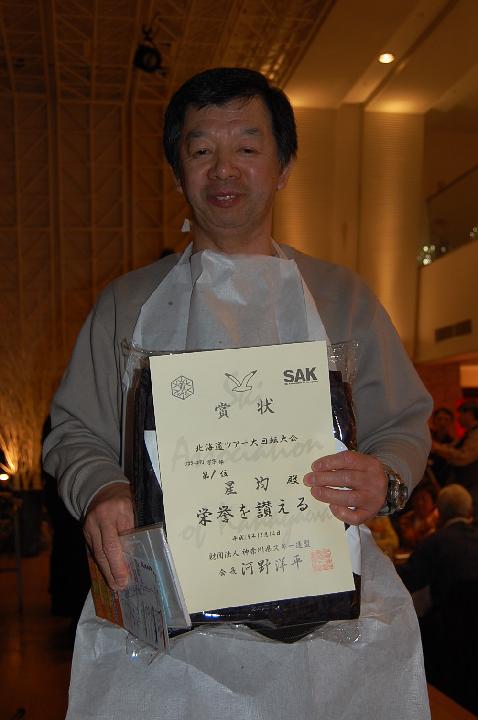 SAK
賞状
北海道ツアー大回転大会
第1位
星 均 殿
栄誉を讃える
財団法人 神奈川県スキー連盟
会長 河野洋平
Ski
Association
of Kanagawa